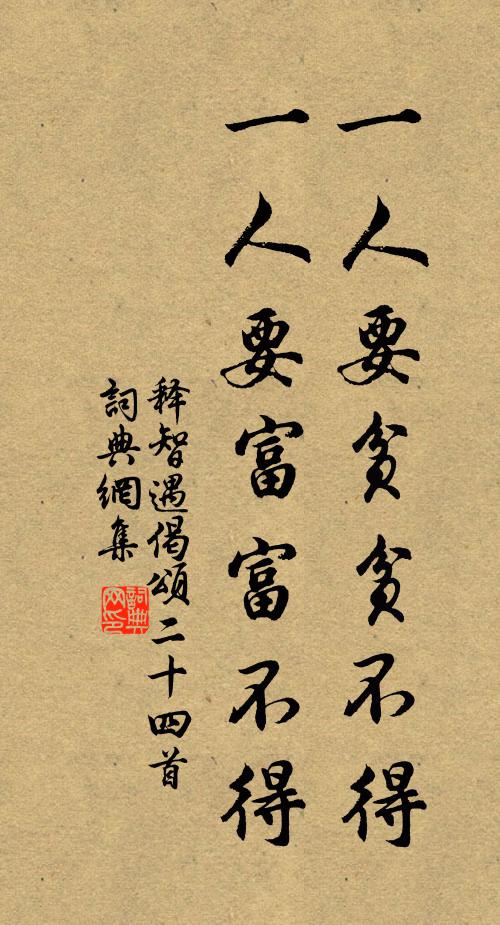 一人要贫贫不得
一人要富富不得
释智遇偈頌二十四首
詞典網集
詞典网印